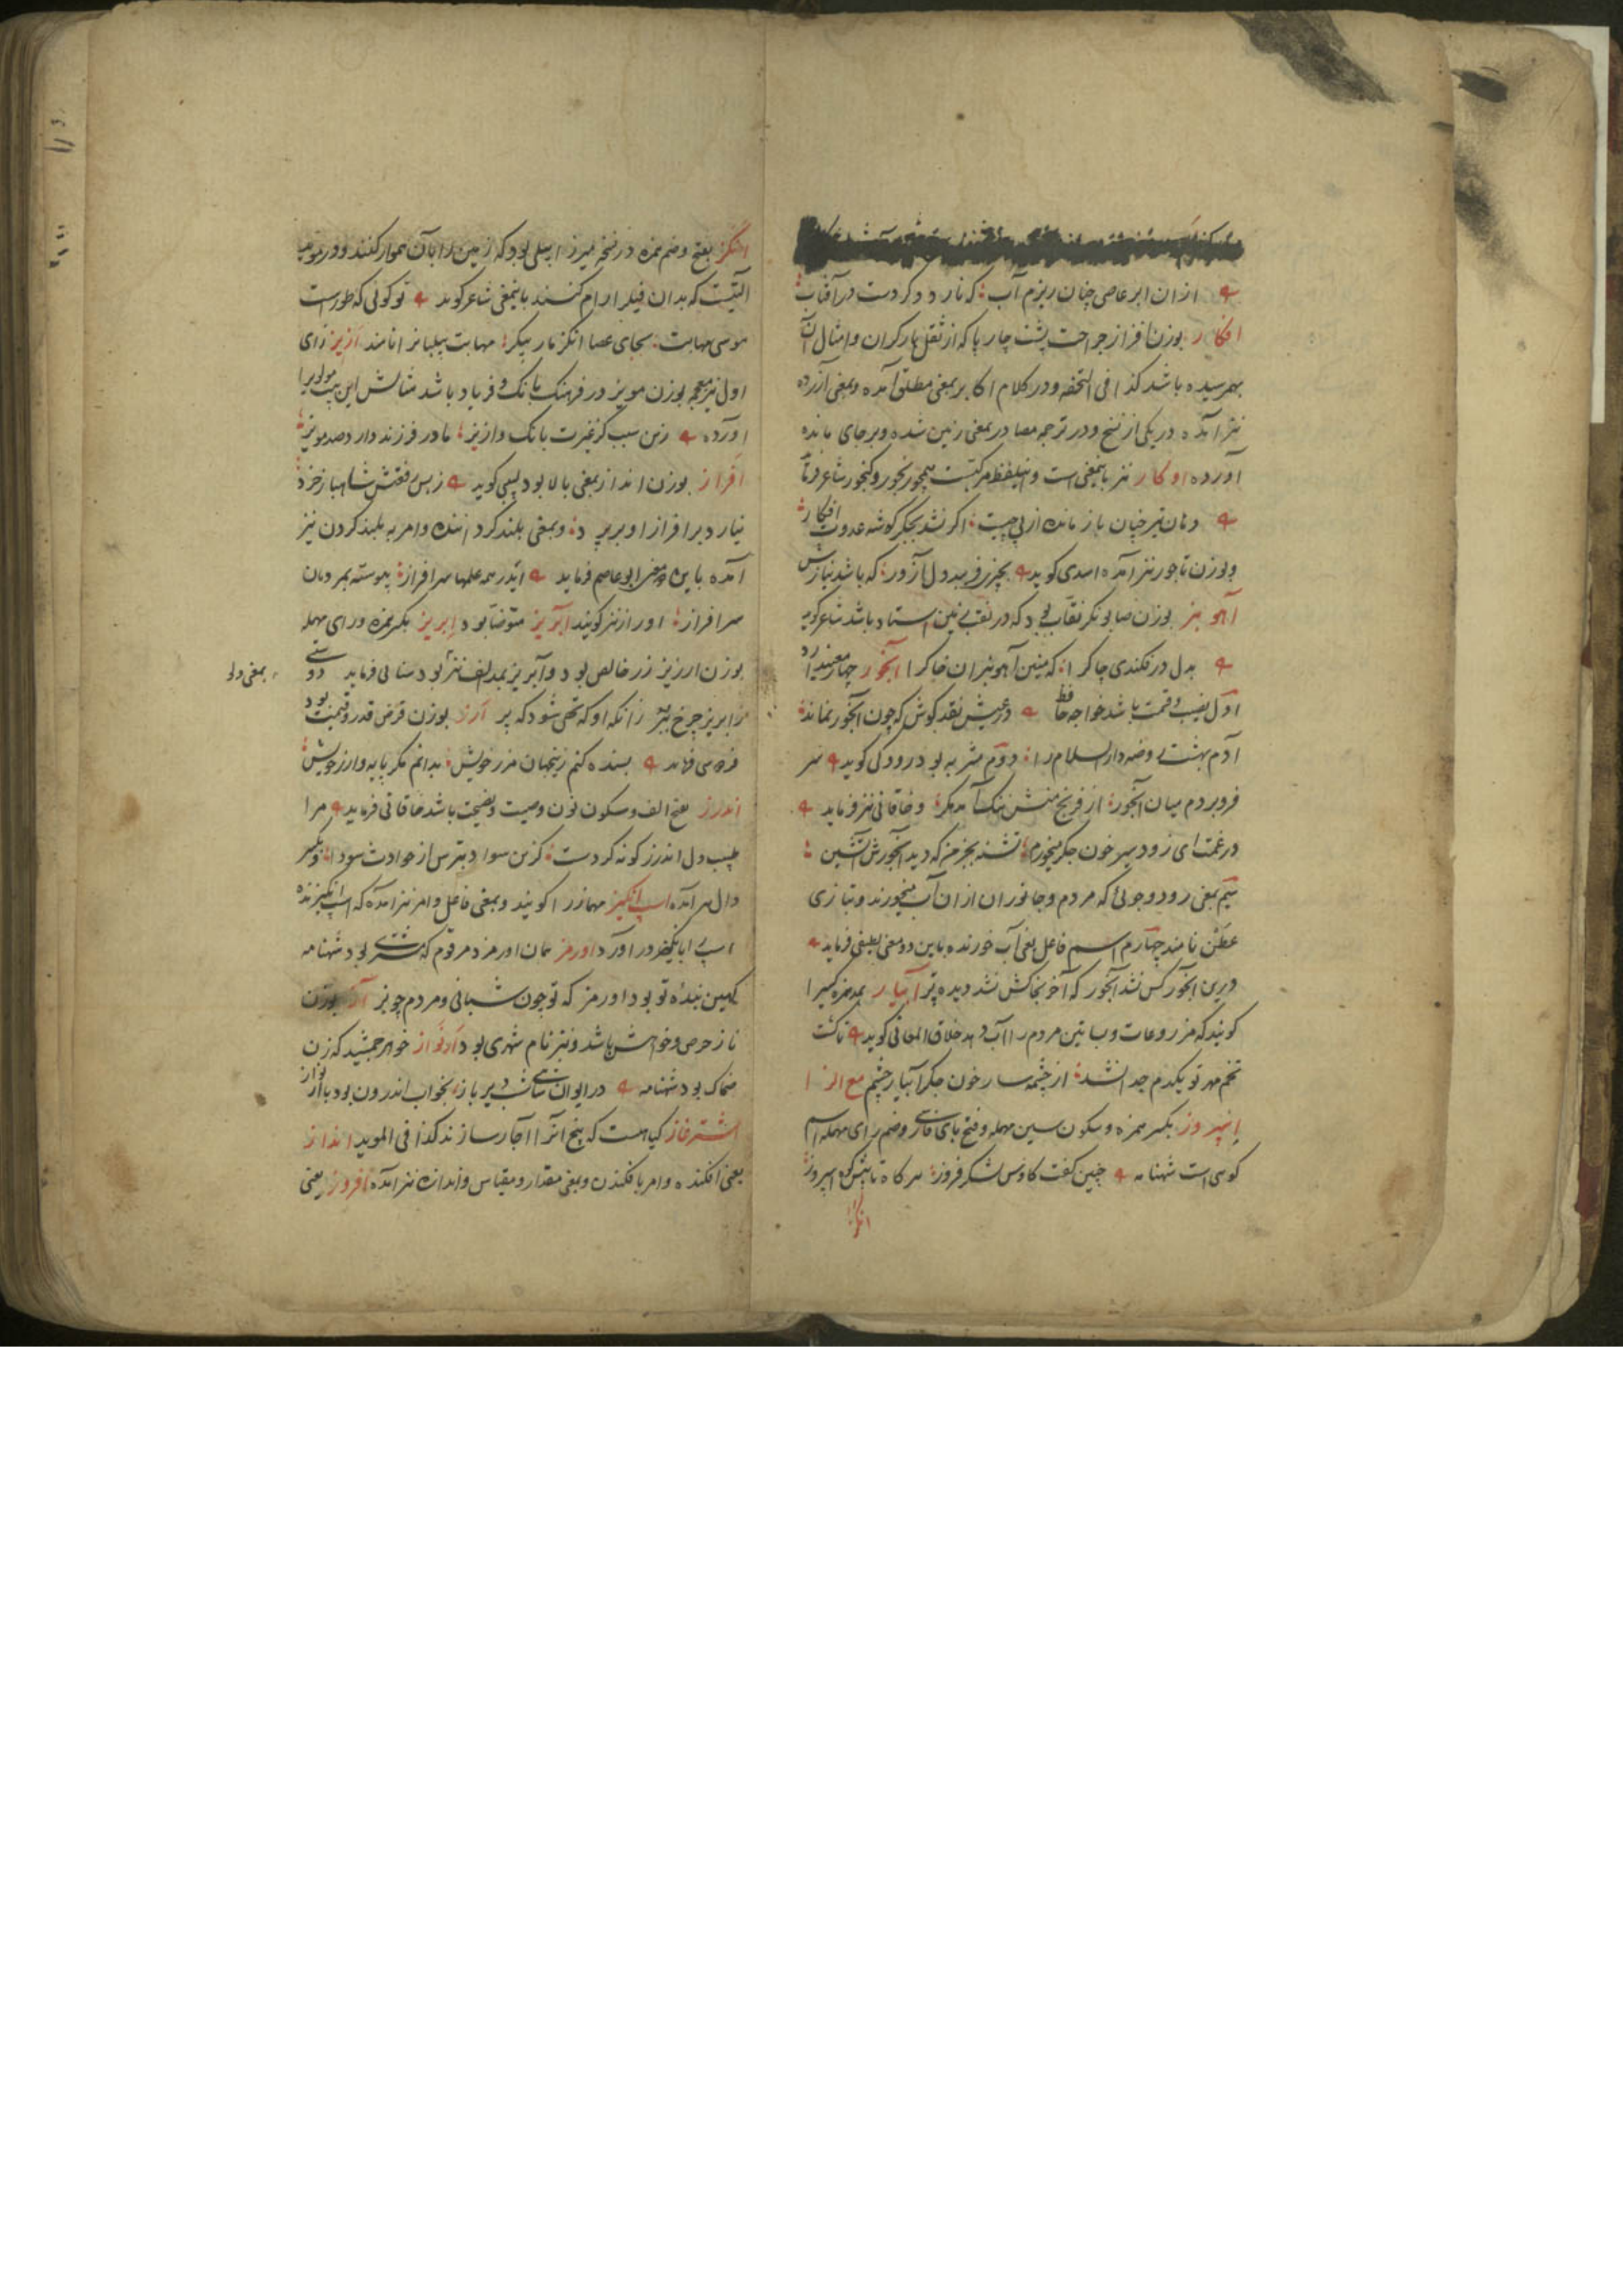 ازان ابر عاصی چنان ریزم آب که نارد دگر دست در آفتاب
افکار بوزن افزار جراحت پشت چارپا که از ثقل بار گران و امثال آن
بهم رسیده باشد کذا فی التحفه و در کلام اکابر بمعنی مطلق آمده و بمعنی آزرده
نیز آمده در یکی از نسخ و در ترجمه مصادر بمعنی زمین شده و بر جای مانده
آورده اوکار نیز باینمعنی است و این لفظ مرکبست همچو رنجور و گنجور شاعر فرماید
دمان تیر خیان باز مانده از پی چیست اگر نشد بجگر گوشه عدوت افکار
و بوزن تاجور نیز آمده اسدی گوید بچیز فریبد دل آزور که باشد نیازش
آهو بر بوزن صابونگر نقاب بود که در نقب زمین استاد باشد شاعر گوید
بدل در فکندی چاکرا که مینین آهوبران خاکرا آبخور چهار معنی دارد
اول نصیب و قسمت باشد خواجه حافظ در عیش نقد کوش که چون آبخور نماند
آدم بهشت روضه دارالسلام را دوم مشربه بود رودکی گوید سر
فرو بردم میان آبخور از فرنج منش ننگ آمد مگر و خاقانی نیز فرماید
در غمت ای زود سیر خون جگر میخورم تشنه بجز من که دید آبخورش آتشین
سیم بمعنی رود و جوئی که مردم و جانوران ازان آب میخورند و بتازی
عطن نامند چهارم اسم فاعل یعنی آب خورنده باین دو معنی لطیفی فرماید
درین آبخور کس نشد آبخور که آخر بخاکش نشد دیده تر آبیار بمد همزه کسیرا
گویند که مزروعات و بساتین مردم را آب دهد خلاق المعانی گوید تا کشت
تخم مهر تو یکدم جدا نشد از چشمه سار خون جگر آبیار چشم مع الزا
اسپروز بکسر همزه و سکون سین مهمله و فتح بای فارسی و ضم رای مهمله اسم
کوهی است شهنامه چنین گفت کاوس لشکر فروز سر گاه تا پیش کوه اسپروز
انگز
انگز بفتح و ضم همزه در نسخه میرزا بیلی بود که زمین را بآن هموار کنند و در موید
آلتیست که بدان فیل را رام کنند باینمعنی شاعر گوید تو گوئی که طور است
موسی مهابت بجای عصا انگز مار پیکر مهابت پیلبانرا نامند ازیز زای
اول نیز معجمه بوزن مویز در فرهنگ بانک و فریاد باشد مثالش این بیت مولویرا
آورده زین سبب کز غیرت بانک و ازیز مادر فرزند دارد صد مویز
افراز بوزن انداز بمعنی بالا بود لبیبی گوید زبس رفعتش شاهباز خرد
نیارد بر افراز او بر پرد و بمعنی بلند گرداننده و امر به بلند کردن نیز
آمده باین معنی ابو عاصم فرماید ایدر همه علمها سرافراز پیوسته بمردمان
سر افراز اورازنیز گویند آبریز متوضا بود ابریز بکسر همزه و رای مهمله
بوزن ارزیز زر خالص بود و آبریز بمد الف نیز بود سنائی فرماید
بمعنی دلو
زابریز چرخ بپر زانکه او که تهی شود که پر ارز بوزن قرض قدر و قیمت بود
فردوسی فرماید بسنده کنم زین جهان مرز خویش بدانم مگر پایه و ارز خویش
اندرز بفتح الف و سکون نون وصیت و نصیحت باشد خاقانی فرماید مرا
طبیب دل اندرز گونه کردست کزین سواد بترس از حوادث سودا و بکسر
دال هم آمده اسپ انگیز مهماز را گویند و بمعنی فاعل و امر نیز آمده که اسپ انگیزنده
اسپ را بانگیز در آورد اورمز همان اورمزد مرقوم که مشتری بود شهنامه
کهین بندهٔ تو بود اورمز که تو چون شبانی و مردم چو بز آز بوزن
ناز حرص و خواهش باشد و نیز نام شهری بود ارنواز خواهر جمشید که زن
ضحاک بود شهنامه در ایوان شاهی شب دیر باز بخواب اندرون بود با ارنواز
اشترغاز گیاهست که بیخ آنرا آچار سازند کذا فی الموید انداز
یعنی افکنده و امر بافکندن و بمعنی مقدار و مقیاس و اندازه نیز آمده افروز یعنی